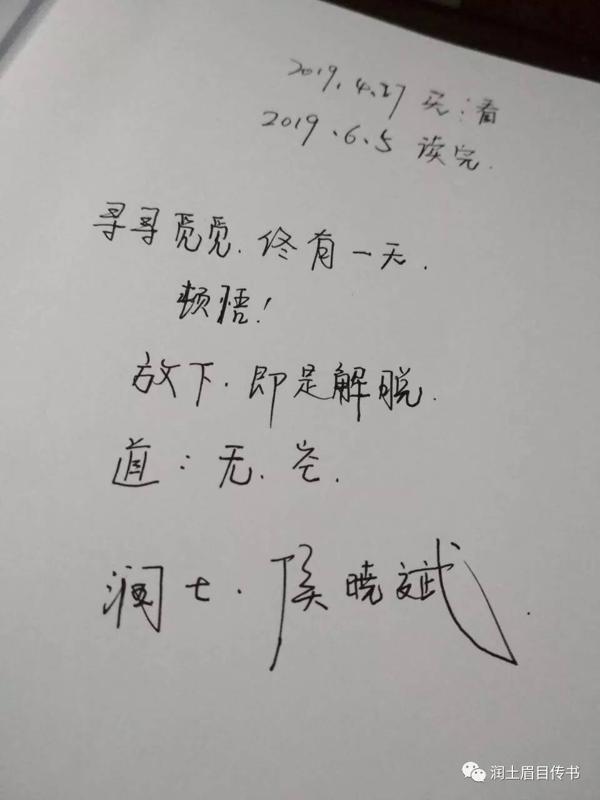 2019.4.27 买:看
2019.6.5 读完.
寻寻觅觅.终有一天.
顿悟!
放下.即是解脱.
道:无.空.
润土.侯晓斌.
润土眉目传书